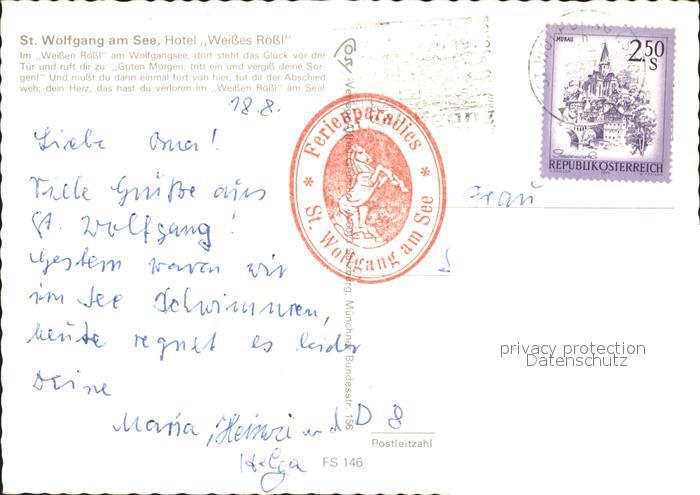 St. Wolfgang am See, Hotel „Weißes Rößl"
Im „Weißen Rößl" am Wolfgangsee, dort steht das Glück vor der
Tür und ruft dir zu: „Guten Morgen, tritt ein und vergiß deine Sor-
gen!" Und mußt du dann einmal fort von hier, tut dir der Abschied
weh; dein Herz, das hast du verloren im „Weißen Rößl" am See!
18. 8.
Liebe Oma!
Viele Grüße aus
St. Wolfgang!
Gestern waren wir
im See Schwimmen,
heute regnet es leider
Deine
Maria, Heinzi und
Helga
Ferienparadies
* *
St. Wolfgang am See
MURAU
2.50
S
REPUBLIK ÖSTERREICH
Frau
privacy protection
Datenschutz
D 8
Postleitzahl
FS 146
München, Bundesstr. 156